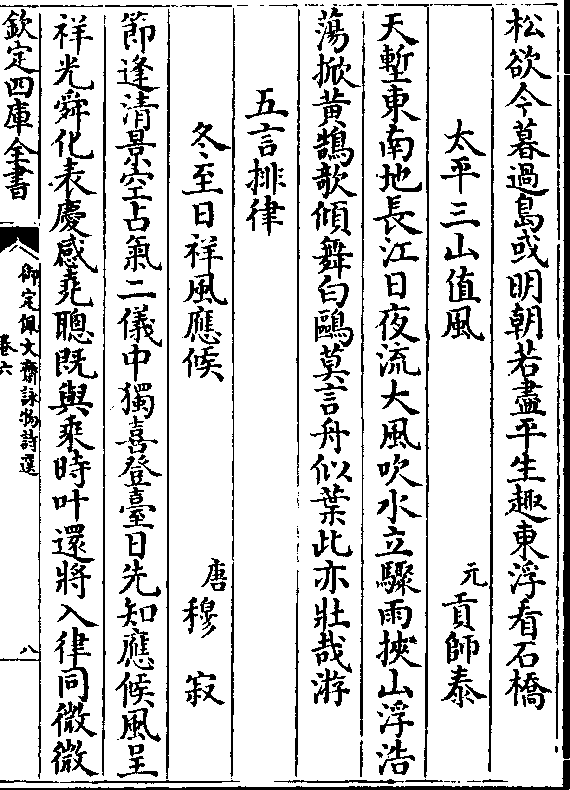 松欲今暮過島或明朝若盡平生趣東浮看石橋
太平三山值風　元　貢師泰
天塹東南地長江日夜流大風吹水立驟雨挾山浮浩
蕩掀黃鵠歌傾舞白鷗莫言舟似葉此亦壯哉游
五言排律
冬至日祥風應候　唐　穆寂
節逢清景空占氣二儀中獨喜登臺日先知應候風呈
祥光舜化表慶感堯聰既與乘時叶還將入律同微微
欽定四庫全書
御定佩文齋詠物詩選
卷六
八